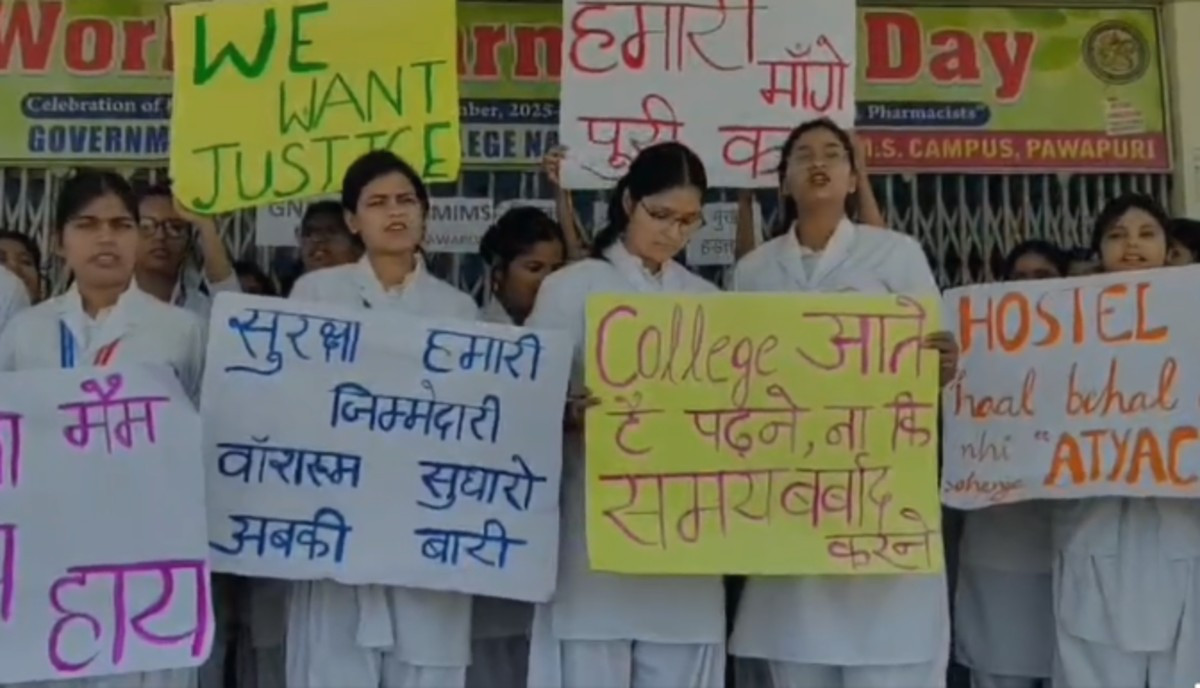 Day
Celebration of
mber, 2025
Pharmacists"
M.S. CAMPUS, PAWAPURI
WE
WANT
JUSTICE
हमारी
माँगे
पूरी
MIMS
मैम
हाय
सुरक्षा हमारी
जिम्मेदारी
वॉशरूम सुधारो
अबकी बारी
College आते
है पढ़ने, ना कि
समय बर्बाद
करने
HOSTEL
haal behal
nhi "ATYAC
sohenge